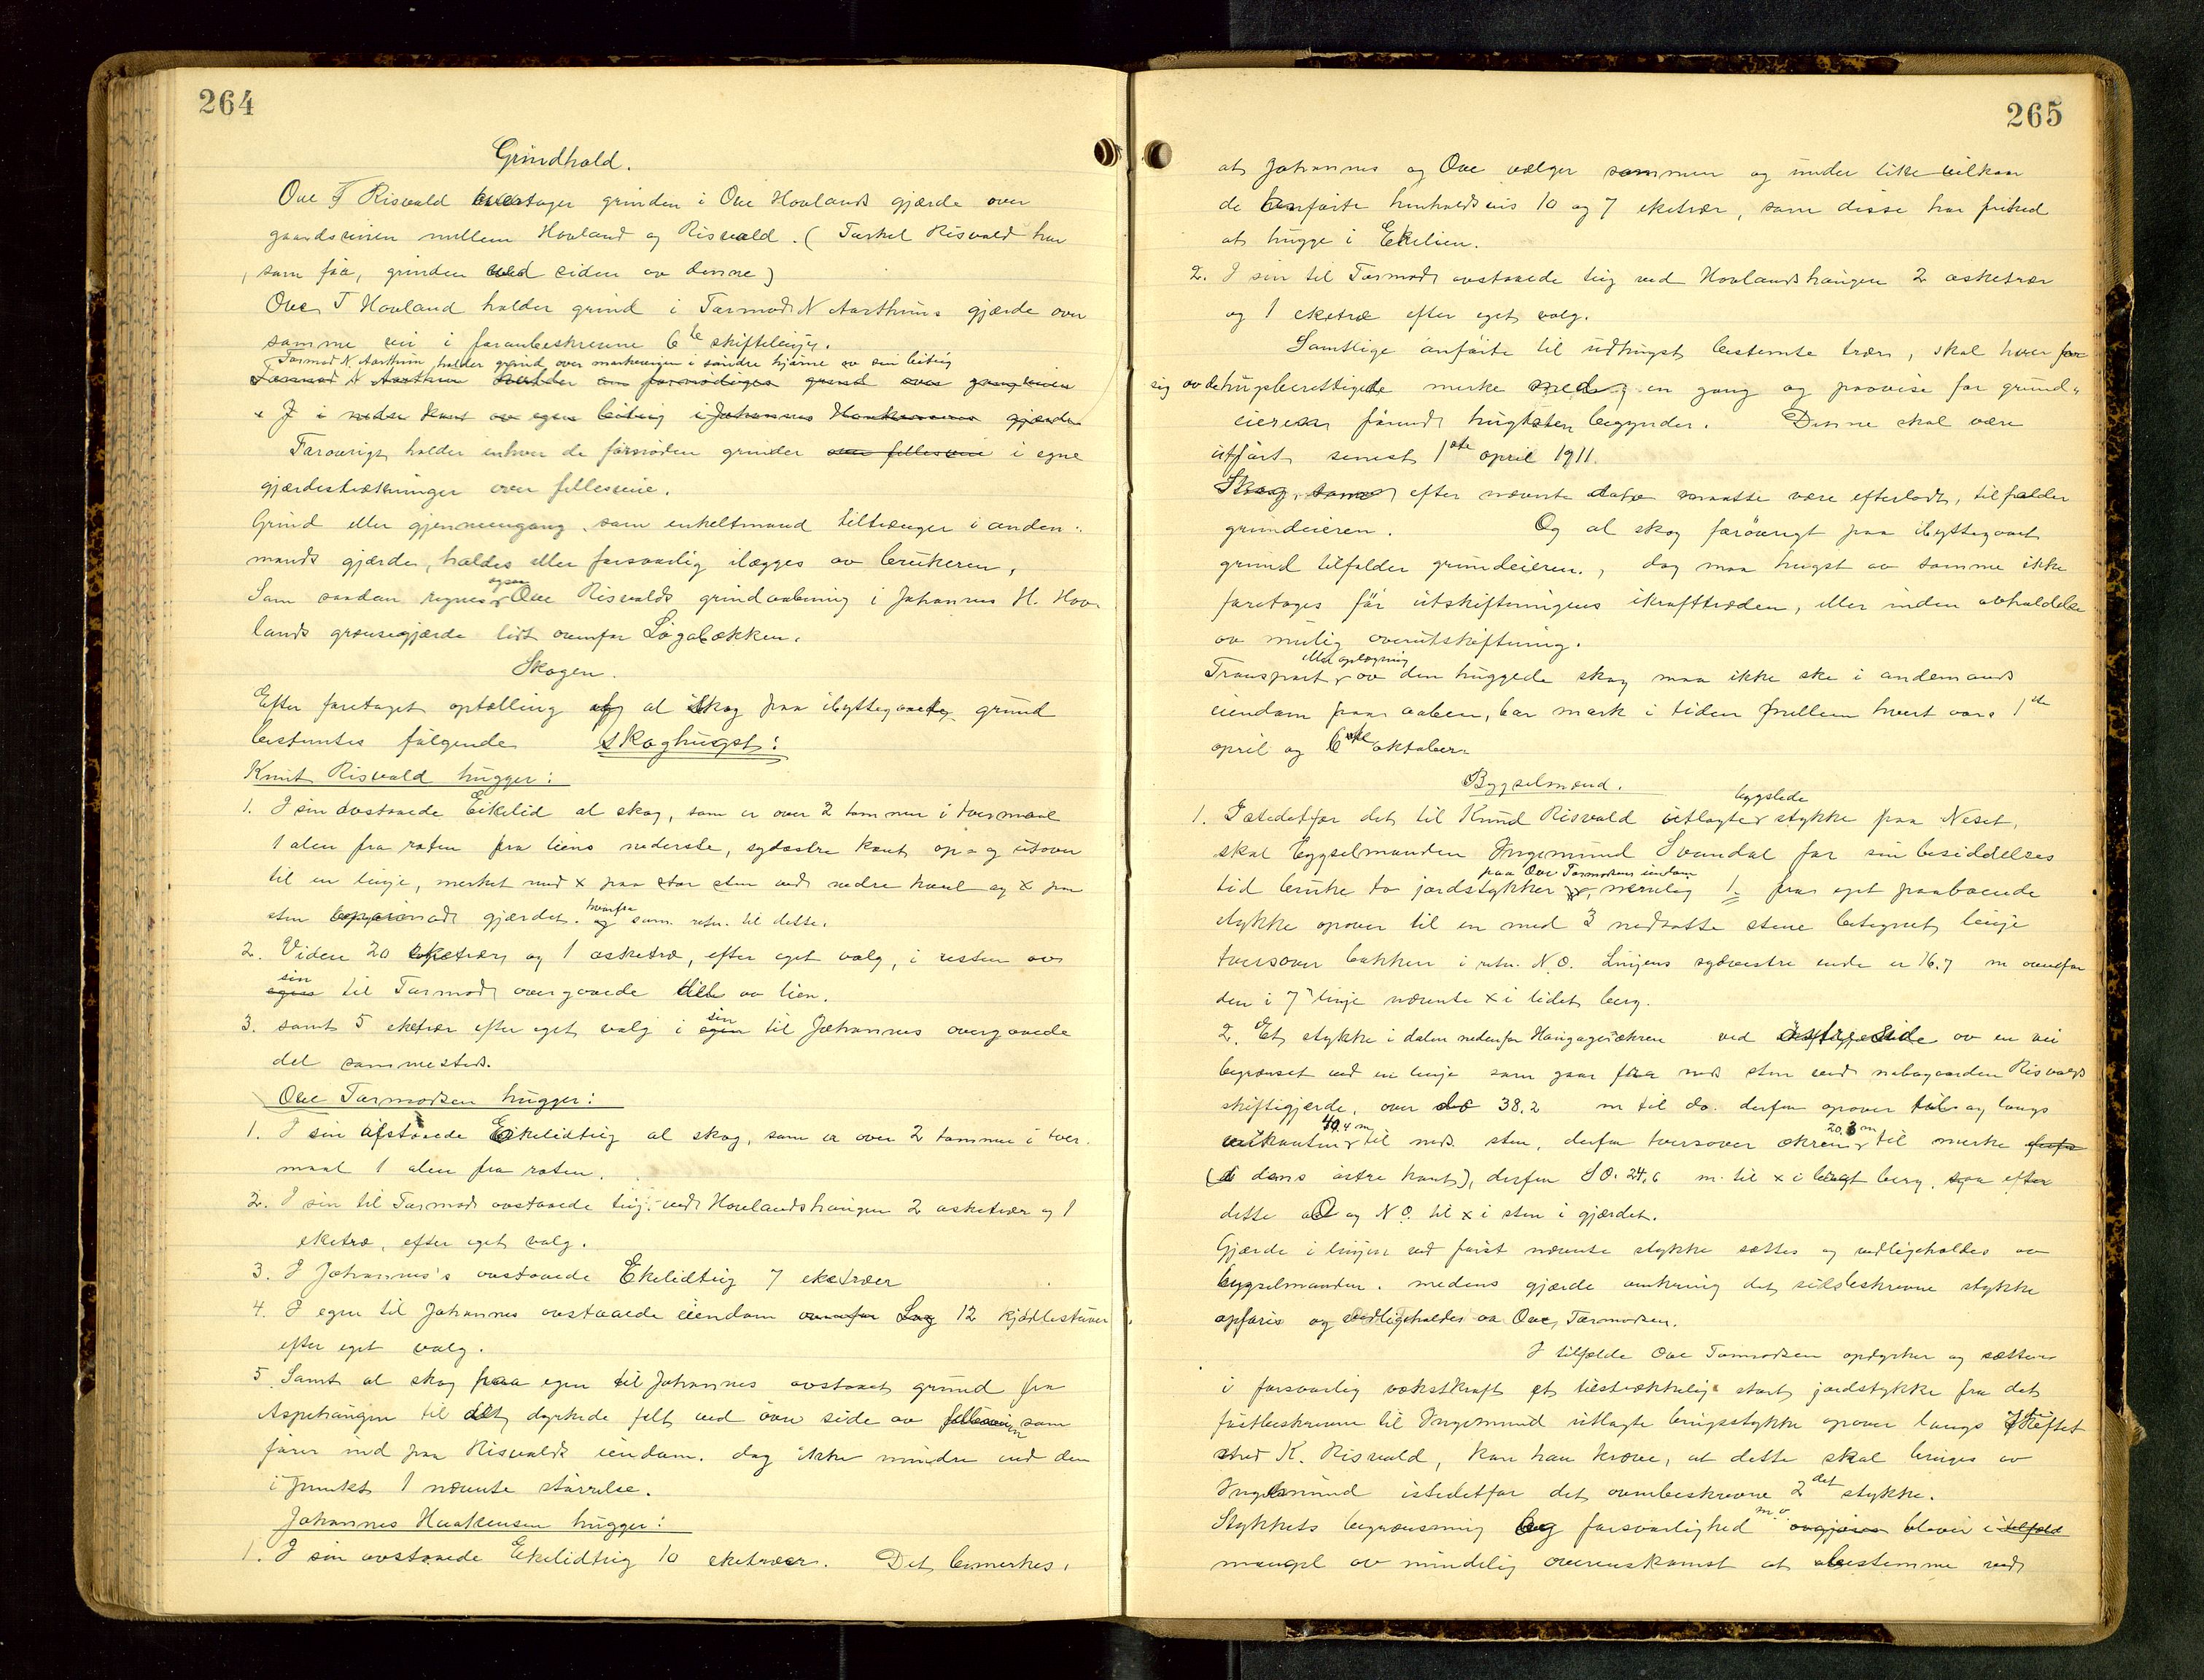 264
Grindhold.
Ove T Risvald overtager grinden i Ove Hovlands gjærde over
gaardsveien mellem Hovland og Risvald. (Torkel Risvald har
som før, grinden ved siden av denne)
Ove T Hovland holder grind i Tormod N Aarthuns gjærde over
samme vei i foranbeskrevne 6te skiftelinje.
Tormod N. Aarthun holder grind over markeveien i søndre hjørne av sin teiig
Tormod N Aarthun holder grind over gangveien
i nedre kant av egen i Johannes gjærde
Forøvrigt holder enhver de fornøden grinder over fellesveie i egne
gjærdestrækninger over fellesveie.
Grind eller gjennemgang, som enkeltmand tiltrænger i anden-
mands gjærder, holdes eller forsvarlig ilægges av brukeren.
Som saadan regnes ogsaa Ove Risvalds grindaabning i Johannes H. Hov-
lands grænsegjærde lidt ovenfor Løgabækken.
Skogen.
Efter foretaget optælling af al skog paa ibyttegaaet grund
bestemtes følgende skoghugst:
Knut Risvald hugger:
1. I sin avstaaede Eikelid al skog, som er over 2 tommer i tvermaal
1 alen fra roten fra liens nederste, sydøstre kant op- og utover
til en linje, merket med x paa stor sten ved nedre kant og x paa
sten ved gjærdet. hvorfra og sam. retn. til dette.
2. Videre 20 eketrær og 1 asketræ, efter eget valg, i resten av
sin egen til Tormod overgaaede del av lien.
3. samt 5 eketrær efter eget valg i sin egen til Johannes overgaaede
del sammesteds.
Ove Tormodsen hugger:
1. I sin afstaaede Eikelidteig al skog, som er over 2 tommer i tver-
maal 1 alen fra roten.
2. I sin til Tormod avstaaede teig ved Hovlandshaugen 2 asketrær og 1
eketræ, efter eget valg.
3. I Johannes's avstaaede Ekelidteig 7 eketrær
4. I egen til Johannes avstaaede eiendom ovenfor Løg 12 kjødlestuver
efter eget valg.
5. Samt al skog paa egen til Johannes avstaaet grund fra
Aspehaugen til det dyrkede felt ved øvre side av fellesveien som
fører ind paa Risvalds eiendom. dog ikke mindre end den
i punkt 1 nævnte størrelse.
Johannes Haakensen hugger:
1. I sin avstaaede Ekelidteig 10 eketrær. Det bemerkes,
265
at Johannes og Ove vælger sammen og under like vilkaar
de anførte henholdsvis 10 og 7 eketrær, som disse har frihed
at hugge i Ekelien.
2. I sin til Tormod avstaaede teig ved Hovlandshaugen 2 asketrær
og 1 eketræ efter eget valg.
Samtlige anførte til udhugst bestemte træer, skal hver for
sig av de hugstberettigede merke med en gang og paavise for grund-
eieren førend hugsten begynder. Denne skal være
utført senest 1ste april 1911.
Skog, som efter nævnte dato maatte være efterladt, tilfalder
grundeieren. Og al skog forøvrigt paa ibyttegaaet
grund tilfalder grundeieren., dog maa hugst av samme ikke
foretages før utskiftningens ikrafttræden, eller inden avholdelse
av mulig overutskiftning.
Transport eller oplægning av den huggede skog maa ikke ske i andenmands
eiendom paa aaben, bar mark i tiden mellem hvert aars 1ste
april og 6te oktober.
Bygselmænd.
1. Istedetfor det til Knud Risvald utlagte bygslede stykke paa Neset,
skal bygselmanden Ingemund Svendal for sin besiddelses
tid bruke to jordstykker paa Ove Tormodsens eiendom, nemlig 1. fra eget paaboende
stykke opover til en med 3 nedsatte stene betegnet linje
tversover bakken i retn. N.O. Linjens sydvestre ende er 16.7 m ovenfor
den i 7 linje nævnte x i lidet berg.
2. Et stykke i dalen nedenfor Haugageröckren ved østre side av en vei
begrænset ved en linje som gaar fra neds sten ved nabogaarden Risvalds
skiftegjærde, over do 38.2 m til do. derfra opover til og langs
veikanten 40.4 m til neds. sten, derfra tversover ækren 20.3 m til merke
(i dens østre kant), derfra S.O. 24,6 m. til x i langt berg, efter
dette O og N.O. til x i sten i gjærdet.
Gjærde i linjen ved først nævnte stykke sættes og vedligeholdes av
bygselmanden. medens gjærde omkring det sidsbeskrevne stykke
opføris og vedligeholdes av Ove Tormodsen.
I tilfælde Ove Tormodsen opdyrker og sætter
i forsvarlig vekstkraft et tilstrækkelig stort jordstykke fra det
førstbeskrevne til Ingemund utlagte brugsstykke opover langs skiftet
med K. Risvald, kan han kræve, at dette skal bruges av
Ingemund istedetfor det ovenbeskrevne 2det stykke.
Stykkets begrænsning og forsvarlighed m.v. avgjøres blever i tilfæld
mangel av mindelig overenskomst at bestemme ved